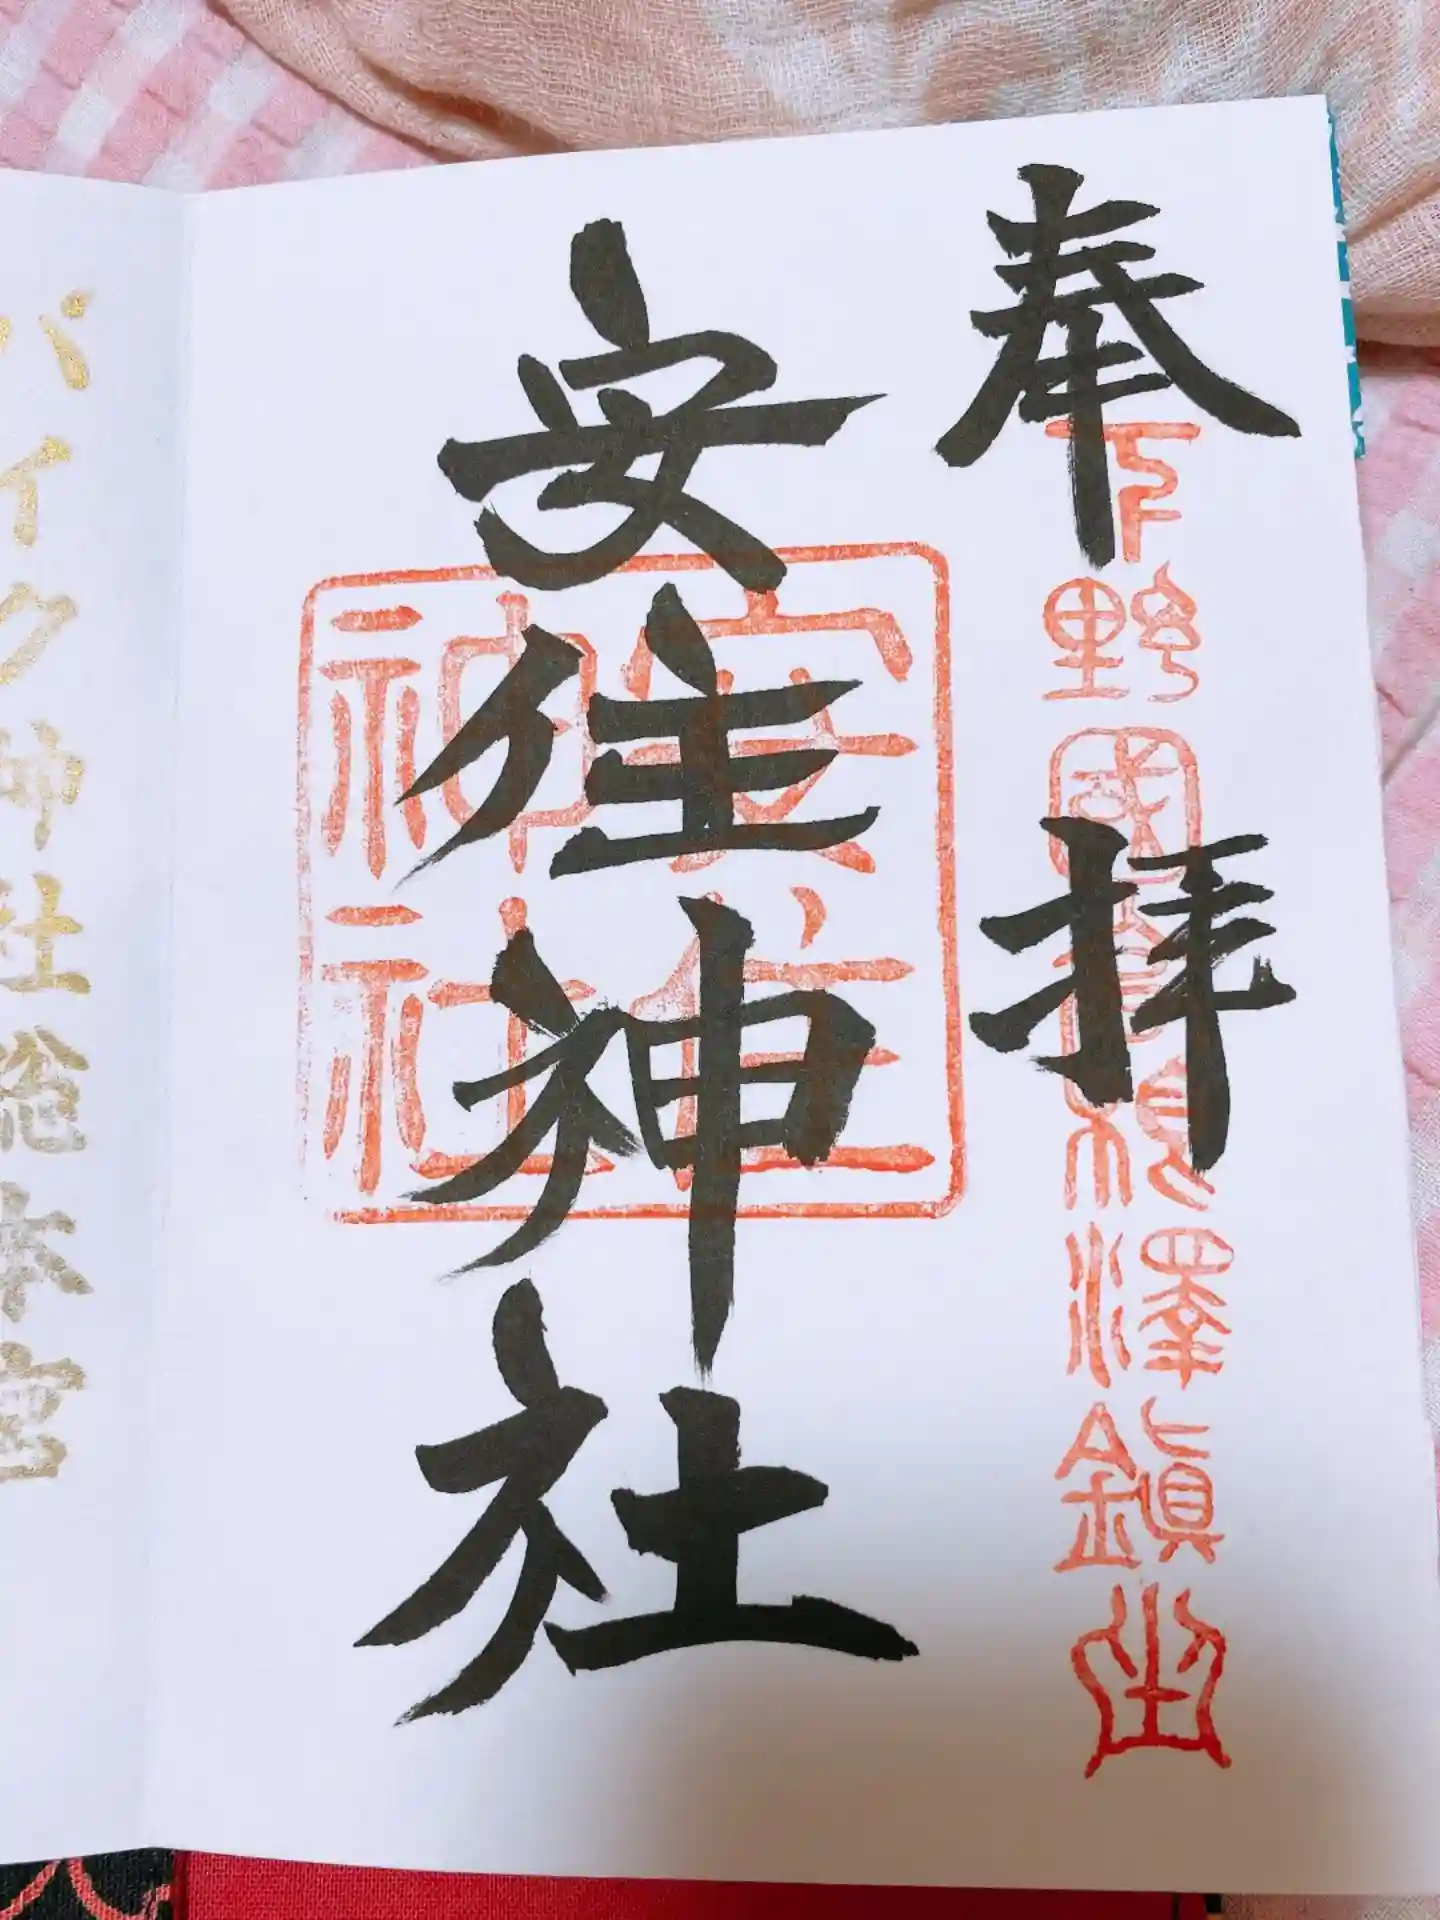 奉拝
下野國高根澤鎮坐
安住神社
安住
神社
バイク神社総本宮